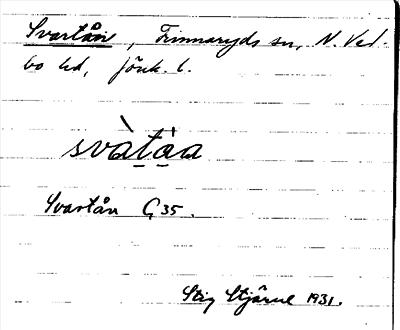 Svartån, Frinnaryds sn, N. Ved-
bo hd, Jönk. l.
svàt̠a̠̍a
Svartån G 35.
Stig Stjärne 1931.